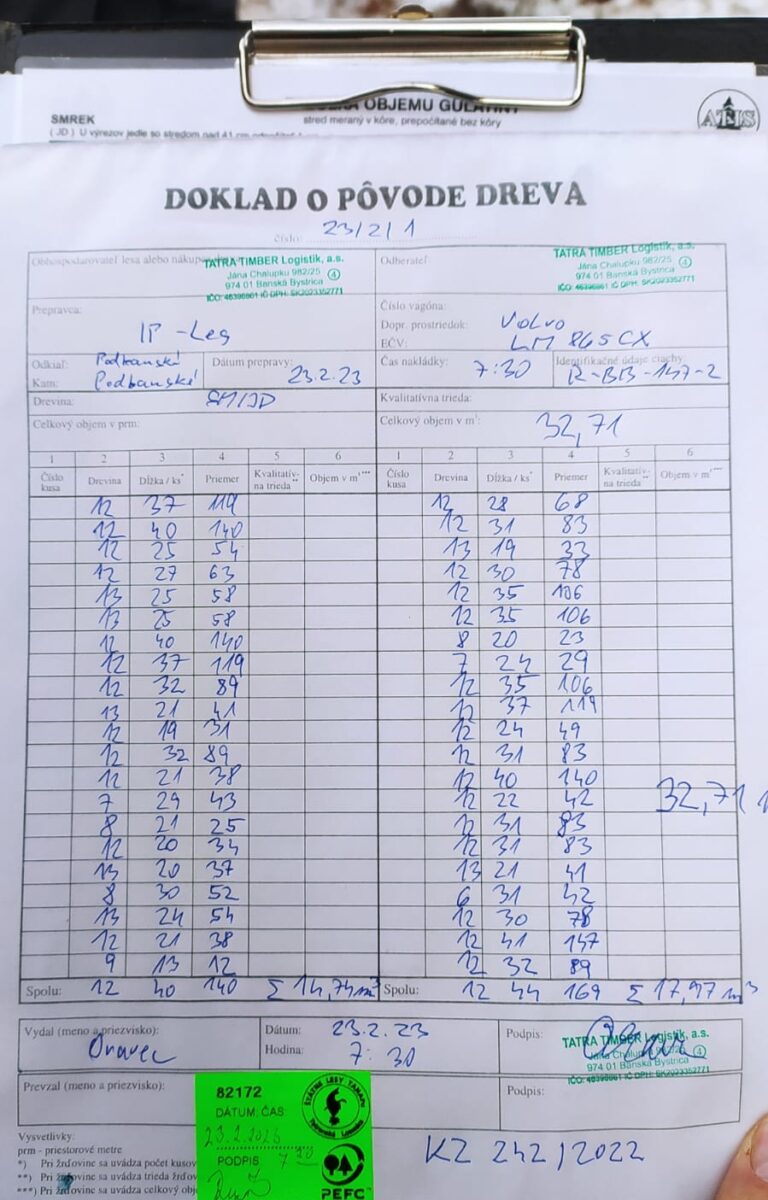 OBJEMU GUĽATINY
SMREK
stred meraný v kôre, prepočítané bez kôry
DOKLAD O PÔVODE DREVA
číslo: 23/2/1
Obhospodarovateľ lesa alebo
TATRA TIMBER Logistik, a.s.
Jána Chalupku 982/25
974 01 Banská Bystrica
Odberateľ:
TATRA TIMBER Logistik, a.s.
Jána Chalupku 982/25
974 01 Banská Bystrica
Prepravca:
IP-Les
Číslo vagóna:
Dopr. prostriedok: Volvo
EČV: LM 865CX
Odkiaľ: Podbanské
Kam: Podbanské
Dátum prepravy: 23.2.23
Čas nakládky: 7:30
Identifikačné údaje ciachy
R-BB-147-2
Drevina: SM/JD
Kvalitatívna trieda:
Celkový objem v prm:
Celkový objem v m³: 32,71
1 2 3 4 5 6 1 2 3 4 5 6
Číslo kusa Drevina Dĺžka / ks* Priemer Kvalitatív-na trieda** Objem v m³*** Číslo kusa Drevina Dĺžka / ks* Priemer Kvalitatív-na trieda** Objem v m³***
12 37 119 12 28 68
12 40 140 12 31 83
12 25 54 13 19 33
12 27 63 12 30 78
13 25 58 12 35 106
13 25 58 12 35 106
12 40 140 8 20 23
12 37 119 7 24 29
12 32 89 12 35 106
13 21 41 12 37 119
12 19 31 12 24 49
12 32 89 12 31 83
12 21 38 12 40 140
7 29 43 12 22 42
32,71
8 21 25 12 31 83
12 20 34 12 31 83
13 20 37 13 21 41
8 30 52 6 31 42
13 24 54 12 30 78
12 21 38 12 41 147
9 13 12 12 32 89
Spolu: 12 40 140 Σ 14,74m³ Spolu: 12 44 169 Σ 17,97 m³
Vydal (meno a priezvisko):
Oravec
Dátum: 23.2.23
Hodina: 7:30
Podpis:
TATRA TIMBER Logistik, a.s.
974 01 Banská Bystrica
Prevzal (meno a priezvisko):
Podpis:
82172
DÁTUM, ČAS
23.2.2023
7 30
PODPIS
ŠTÁTNE LESY TANAPU
PEFC
KZ 242/2022
Vysvetlivky:
prm - priestorové metre
*) Pri žrďovine sa uvádza počet kusov
**) Pri žrďovine sa uvádza trieda
***) Pri žrďovine sa uvádza celkový